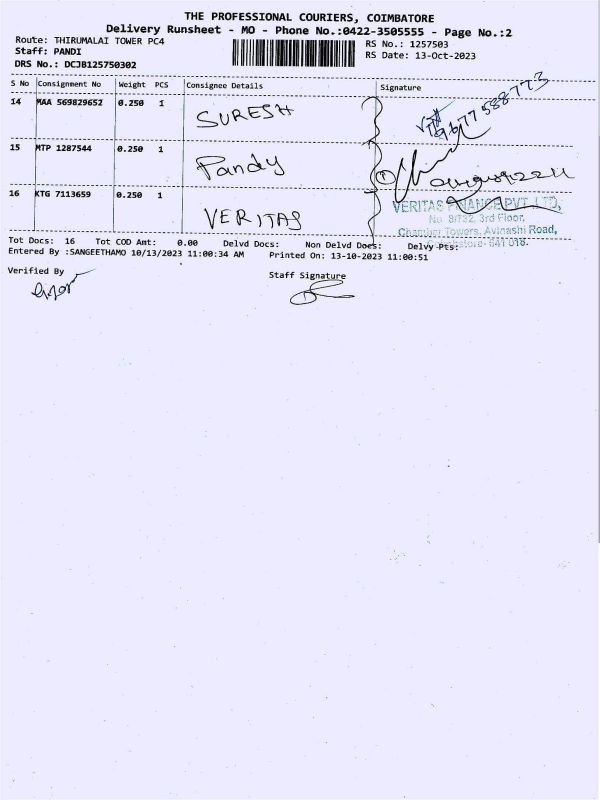 THE PROFESSIONAL COURIERS, COIMBATORE
Delivery Runsheet - MO - Phone No.:0422-3505555 - Page No.:2
Route: THIRUMALAI TOWER PC4
RS No.: 1257503
Staff: PANDI
RS Date: 13-Oct-2023
DRS No.: DCJB125750302
S No Consignment No Weight PCS Consignee Details Signature
14 MAA 569829652 0.250 1 SURESH
15 MTP 1287544 0.250 1 Pandy
16 KTG 7113659 0.250 1 VERITAS
VERITAS FINANCE PVT. LTD,
No 8/732, 3rd Floor,
Chamber Towers, Avinashi Road,
Coimbatore- 641 018.
Tot Docs: 16 Tot COD Amt: 0.00 Delvd Docs: Non Delvd Docs: Delvy Pts:
Entered By :SANGEETHAMO 10/13/2023 11:00:34 AM Printed On: 13-10-2023 11:00:51
Verified By Staff Signature